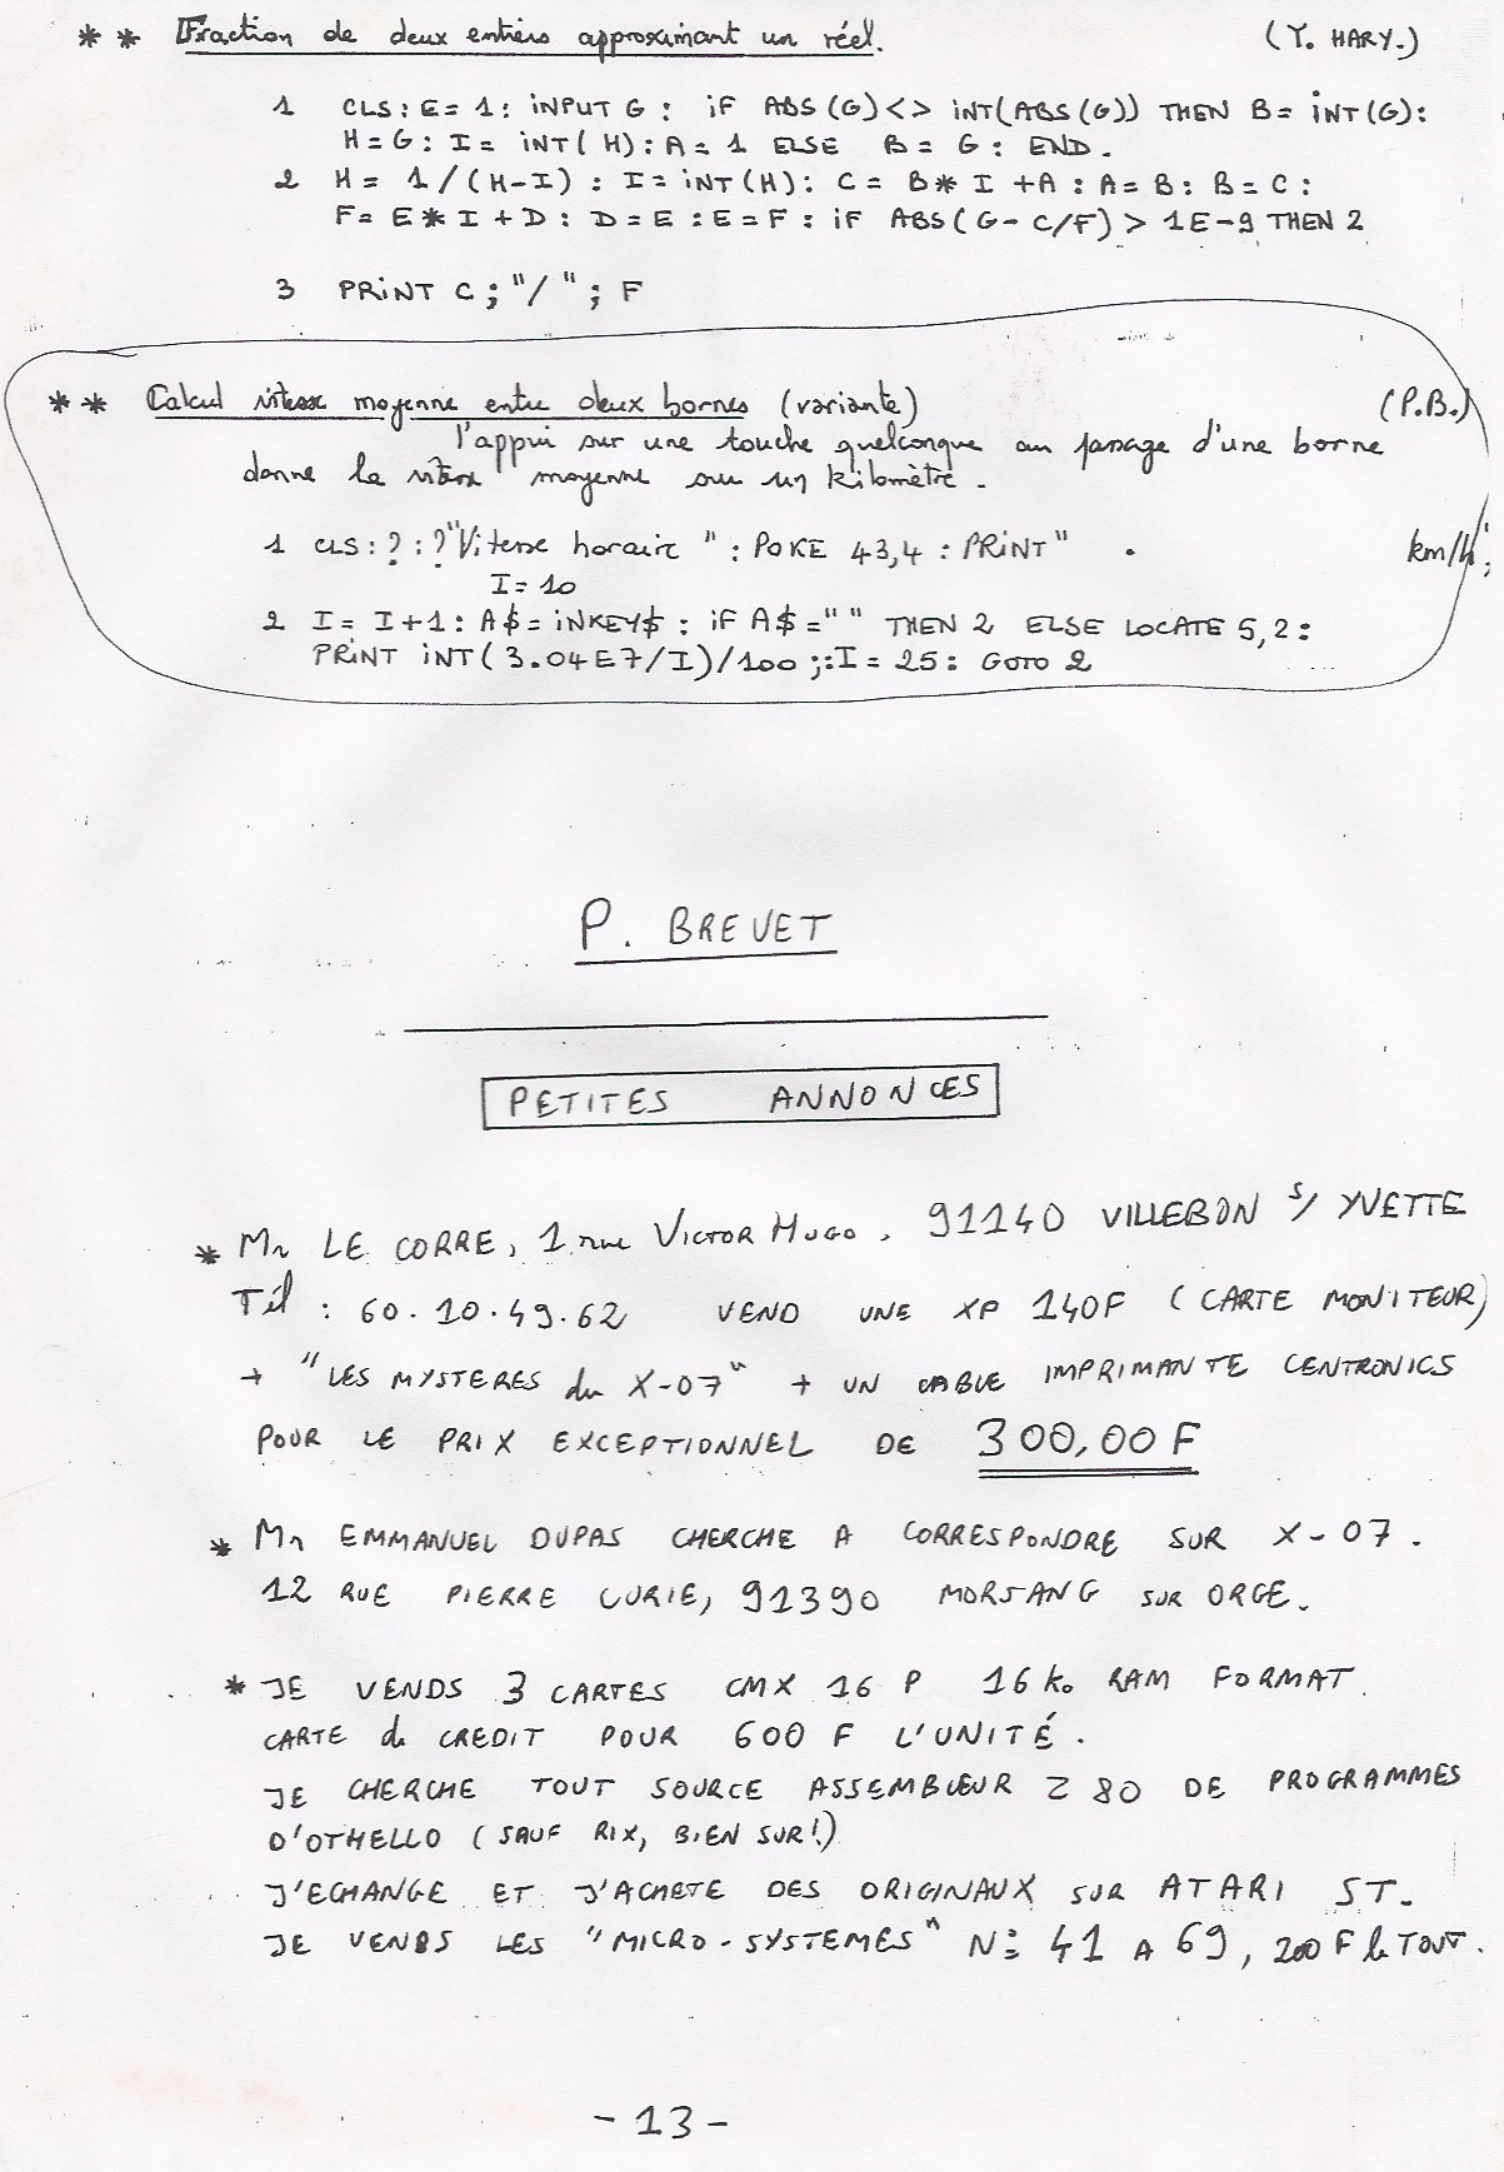 ** Fraction de deux entiers approximant un réel. (Y. HARY.)
1 CLS: E= 1: iNPUT G : iF ABS(G)<> iNT(ABS(G)) THEN B= iNT(G):
H=G: I= iNT(H): A= 1 ELSE B= G: END.
2 H= 1/(H-I) : I=iNT(H): C= B* I +A : A=B: B=C:
F= E*I+D: D=E :E=F : iF ABS(G-C/F)> 1E-9 THEN 2
3 PRiNT C;"/";F
** Calcul vitesse moyenne entre deux bornes (variante) (P.B.)
l'appui sur une touche quelconque au passage d'une borne
donne la vitesse moyenne sur un kilomètre.
1 CLS:?:?"Vitesse horaire ": POKE 43,4 : PRiNT" . km/h";
I=10
2 I= I+1: A$=iNKEY$: iF A$="" THEN 2 ELSE LOCATE 5,2:
PRiNT iNT(3.04E7/I)/100;:I=25: GOTO 2
P. BREVET
PETITES ANNONCES
* Mr LE CORRE, 1 rue VICTOR HUGO, 91140 VILLEBON S/ YVETTE
Tél : 60.10.49.62 VEND UNE XP 140F (CARTE MONITEUR)
+ "LES MYSTERES du X-07" + UN CABLE IMPRIMANTE CENTRONICS
POUR LE PRIX EXCEPTIONNEL DE 300,00 F
* Mr EMMANUEL DUPAS CHERCHE A CORRESPONDRE SUR X-07.
12 RUE PIERRE CURIE, 91390 MORSANG SUR ORGE.
* JE VENDS 3 CARTES CMX 16 P 16 Ko RAM FORMAT
CARTE de CREDIT POUR 600 F L'UNITÉ.
JE CHERCHE TOUT SOURCE ASSEMBLEUR Z 80 DE PROGRAMMES
D'OTHELLO (SAUF RIX, BIEN SUR!)
J'ECHANGE ET J'ACHETE DES ORIGINAUX SUR ATARI ST.
JE VENDS LES "MICRO-SYSTEMES" N° 41 A 69, 200 F le TOUT.
-13-